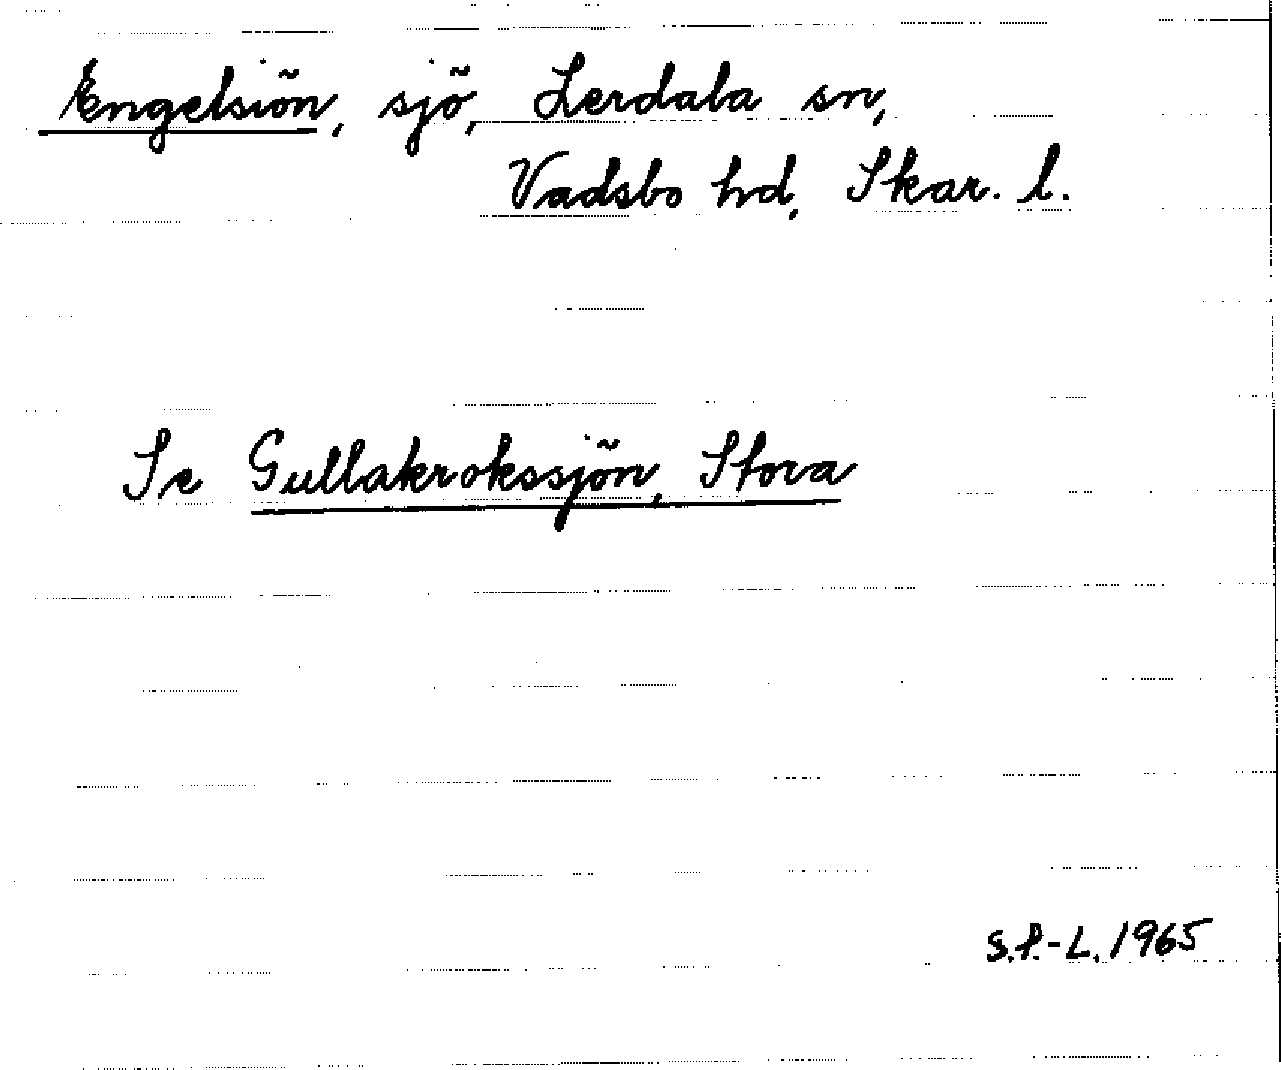 Engelsiön, sjö, Lerdala sn,
Vadsbo hd, Skar. l.
Se Gullakrokssjön, Stora
S.P.-L. 1965